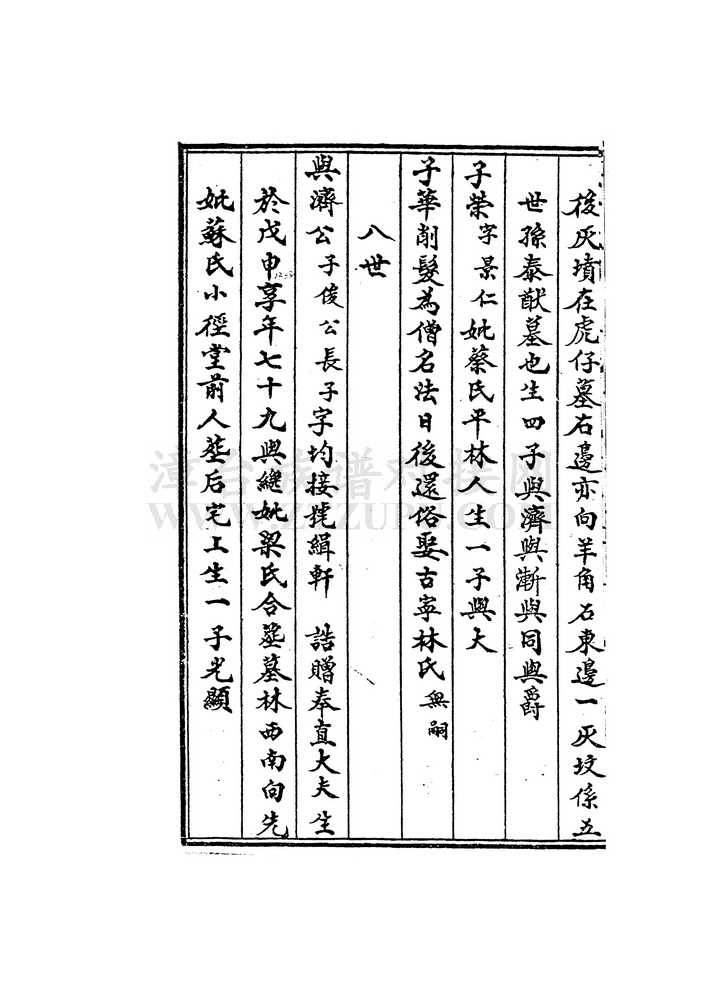 後灰墳在虎仔墓右邊亦向羊角石東邊一灰坟係五
世孫泰猷墓也生四子與濟與漸與同與爵
子榮字景仁妣蔡氏平林人生一子與大
子華削髮為僧名法日後還俗娶古寧林氏無嗣
八世
與濟公子俊公長子字均接號緝軒 誥贈奉直大夫生
於戊申享年七十九與繼妣梁氏合塟墓林西南向先
妣蘇氏小徑堂前人塟后宅工生一子光顯
漳台族谱对接网